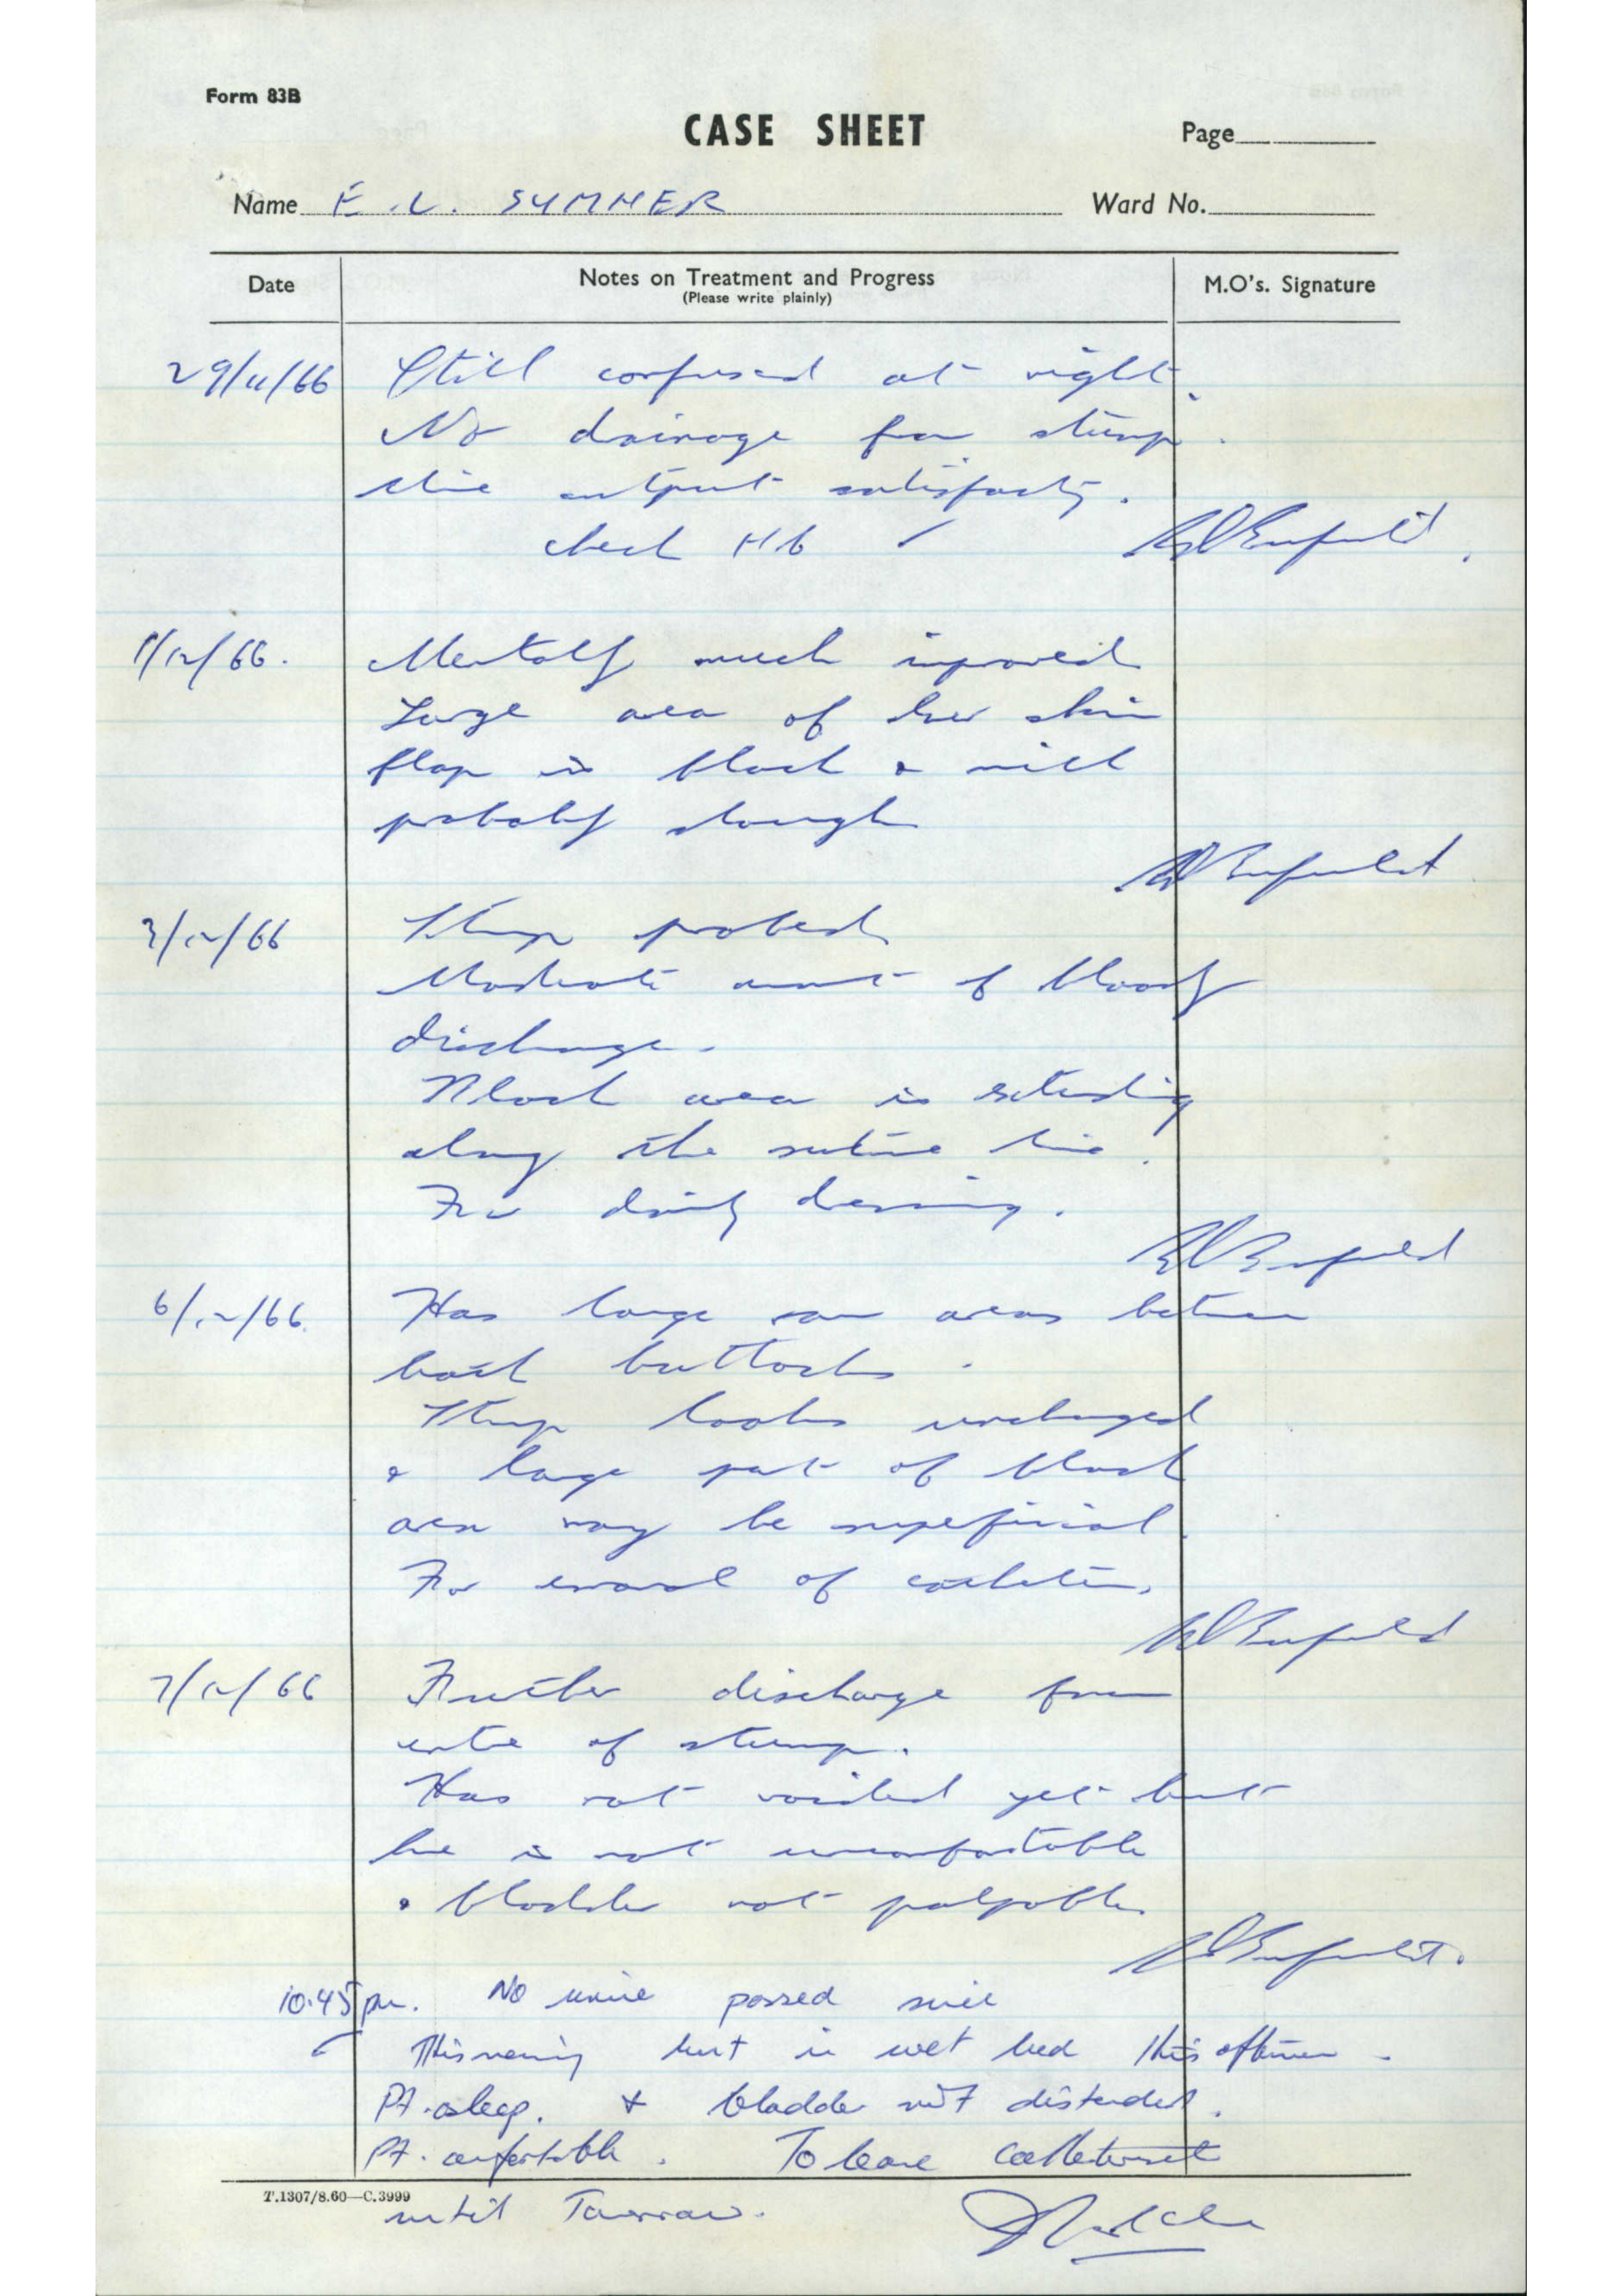 Form 83B
CASE SHEET
Page
Name E. L. SUMMER
Ward No.
Date
Notes on Treatment and Progress
(Please write plainly)
M.O's. Signature
29/11/66 Still confused at night.
No drainage from stump.
Urine output satisfactory.
check Hb ✓
1/12/66. Mentally much improved
Large area of lower skin
flap is black & will
probably slough
3/12/66 Stump probed
Moderate amount of bloody
discharge.
Black area is extending
along the suture line.
For daily dressing.
6/12/66 Has large raw areas between
both buttocks.
Stump looks unchanged
& large part of black
area may be superficial.
For removal of catheter.
7/12/66 Further discharge from
centre of stump.
Has not voided yet but
he is not uncomfortable
& bladder not palpable.
10.45 pm. No urine passed since
This morning but in wet bed this afternoon.
Pt. asleep. + bladder not distended.
Pt. comfortable. To leave catheter out
T.1307/8.60—C.3999
until Tomorrow.